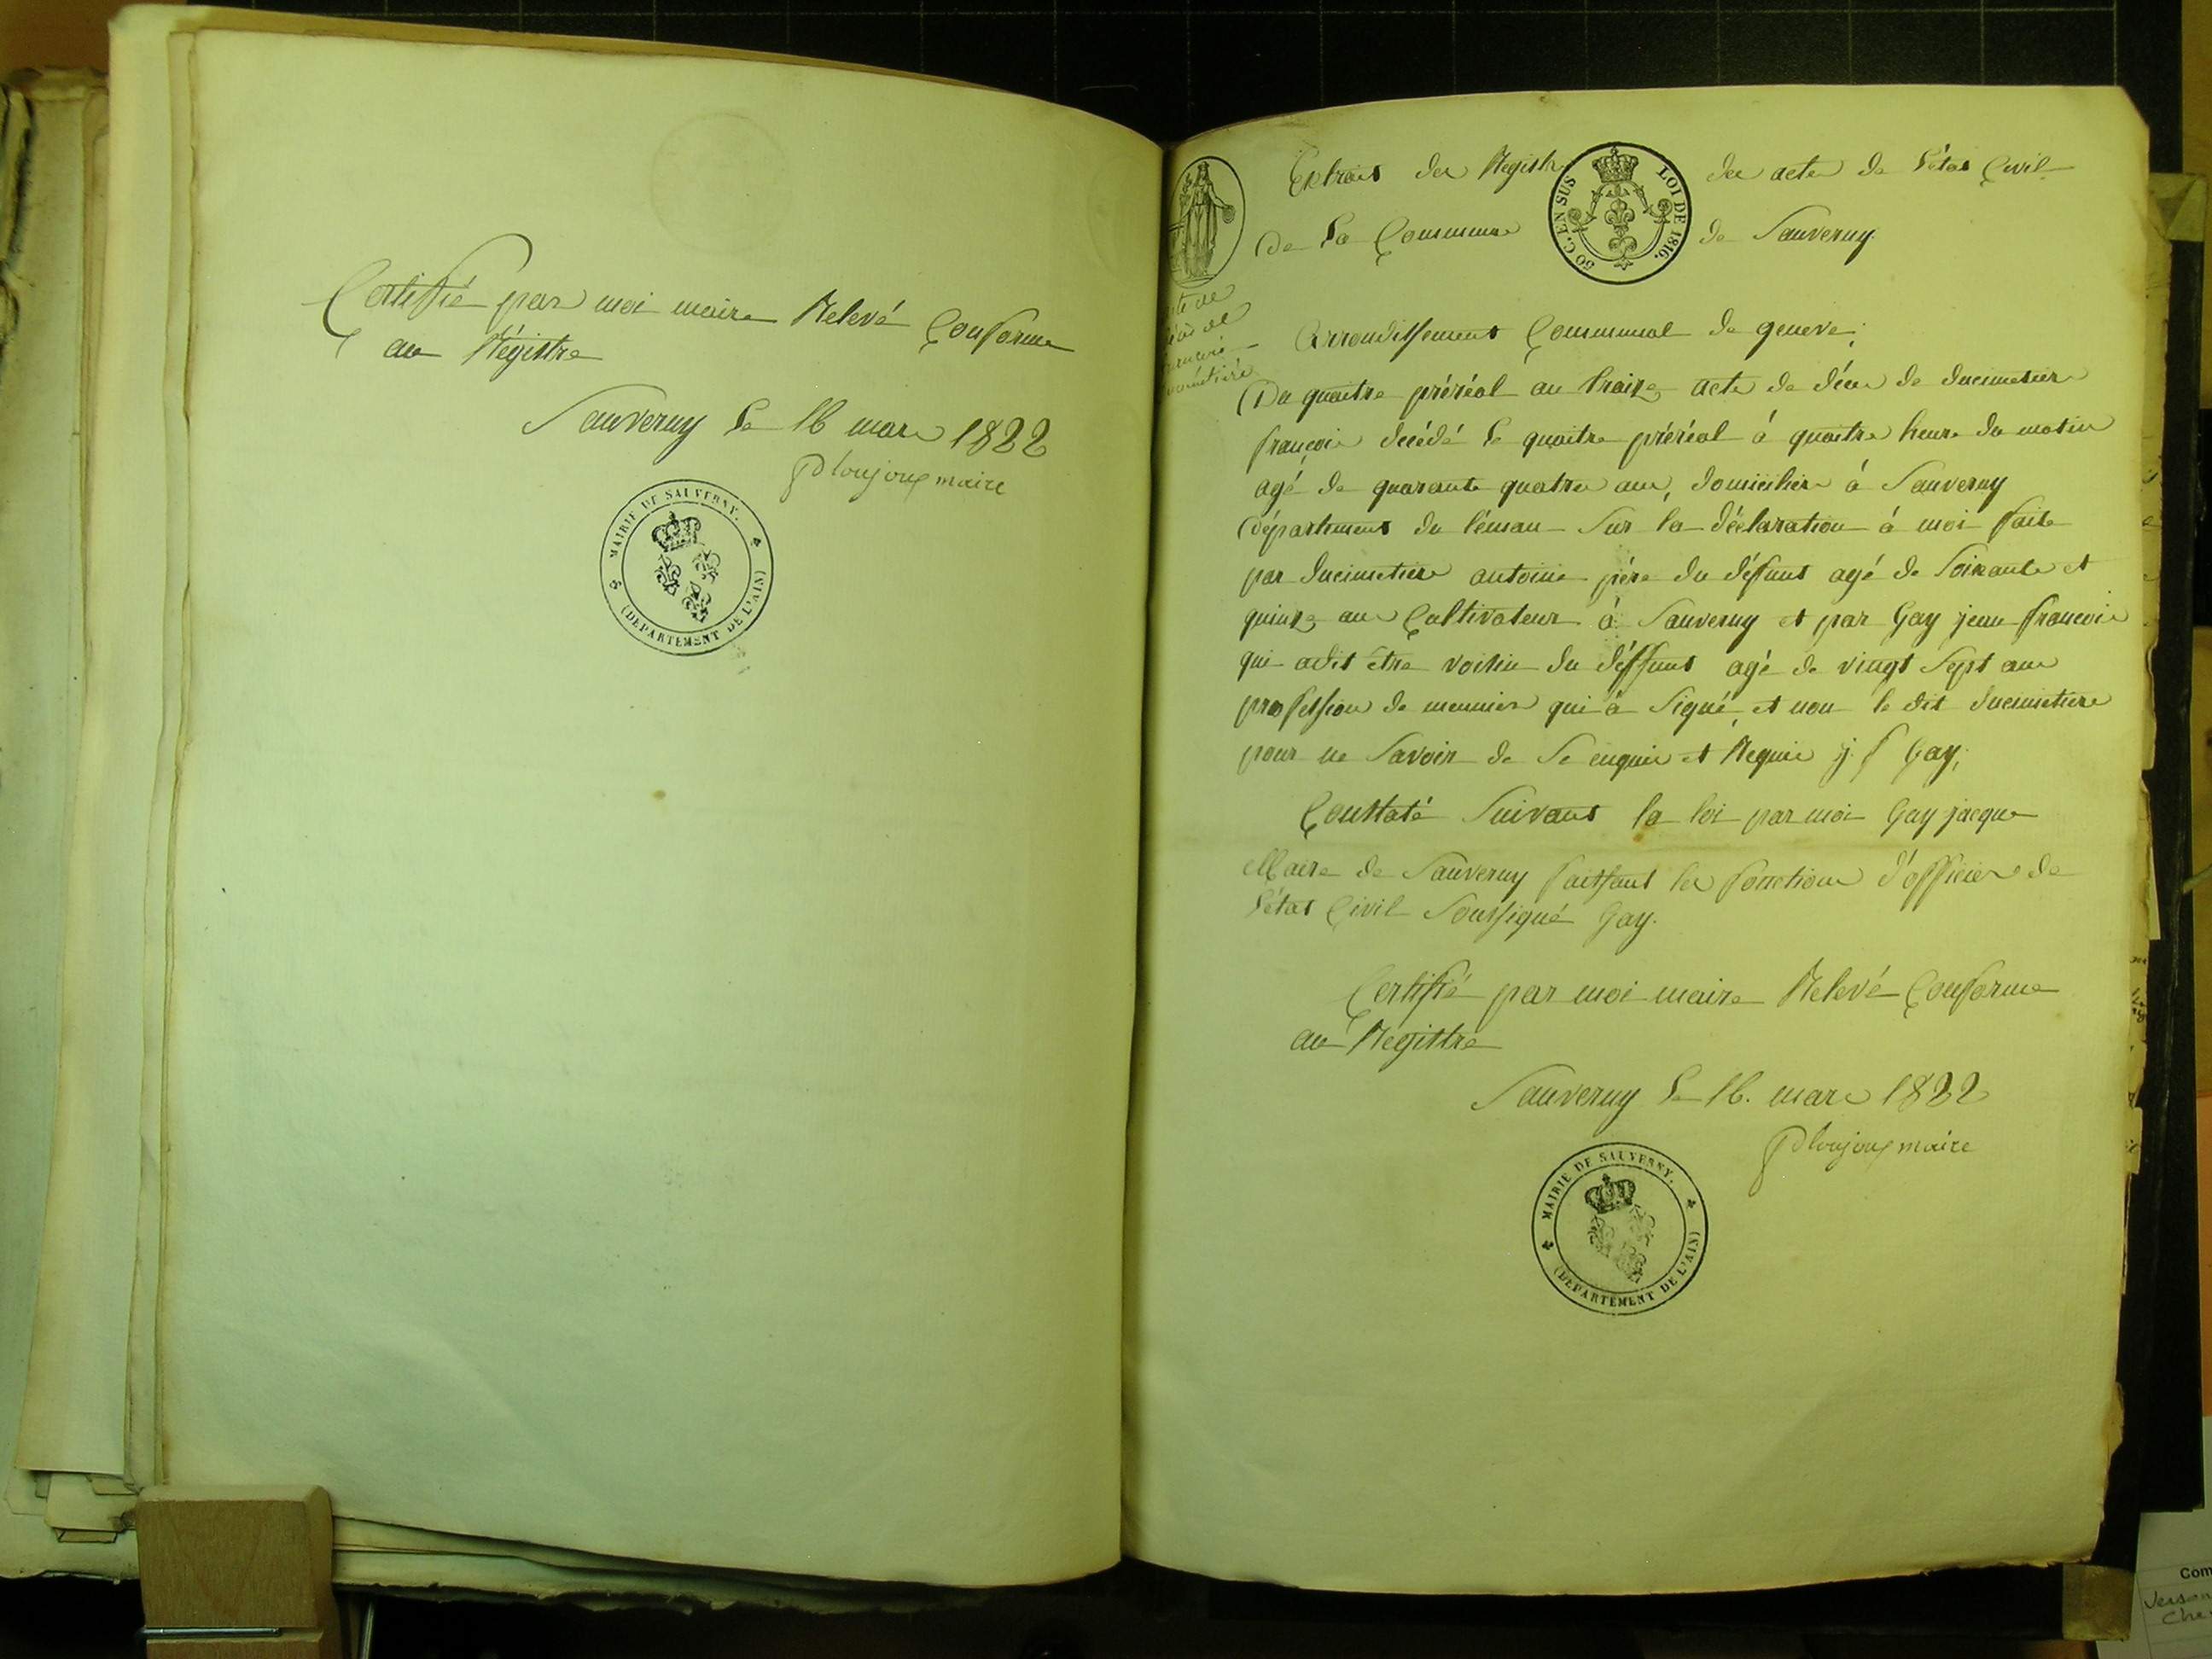 Certiffié par moi maire Relevé Conforme
au Régistre
Sauverny le 16 mars 1822
maire
MAIRIE DE SAUVERNY.
(DEPARTEMENT DE L'AIN)
Extrait des Registr des actes de l'état Civil
50 C. EN SUS
LOI DE 1816.
de la Commune de Sauverny
Arrondissement Communal de geneve;
Du quaitre préréal an traize acte de décès de ducimetiere
françois décédé le quaitre préréal à quaitre heures du matin
agé de quarante quatre ans, domicilier à Sauverny
département du léman Sur la déclaration à moi faite
par ducimetiere antoine père du défunt agé de Soixante et
quinze ans Cultivateur à Sauverny et par Gay jean françois
qui adit être voisin du déffunt agé de vingt Sept ans
profession de meunier qui à Signé, et non le dit ducimetiere
pour ne Savoir de Se enquis et Requis j. f Gay;
Constaté Suivant la loi par moi Gay jacque
Maire de Sauverny faissant les fonctions d'officier de
l'état Civil Soussigné Gay.
Certifié par moi maire Relevé Conforme
au Régistre
Sauverny le 16. mars 1822
maire
MAIRIE DE SAUVERNY.
(DEPARTEMENT DE L'AIN)
Com